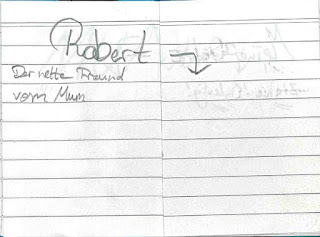 Robert
Der nette Freund
vom Mum